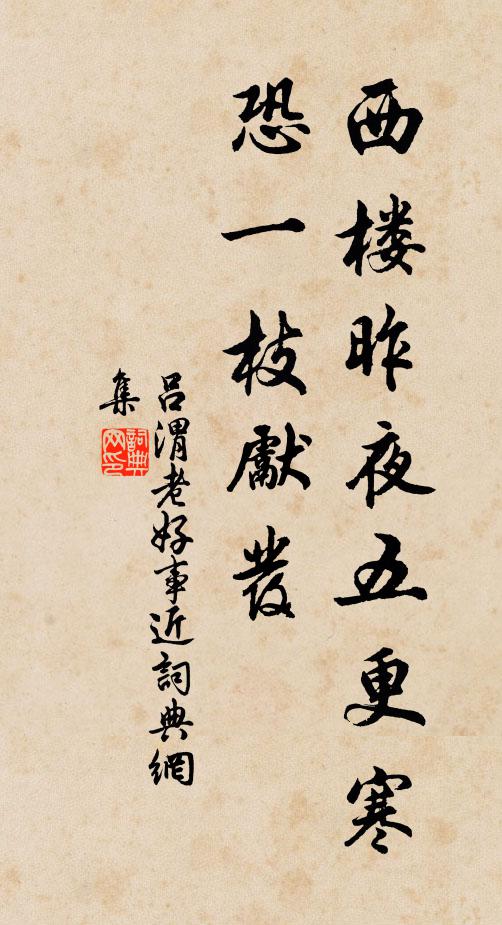 西楼昨夜五更寒
恐一枝獻發
呂渭老好事近詞典網
集
詞典
网印